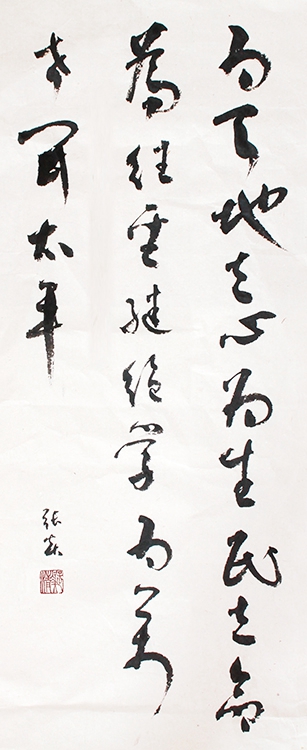 為天地立心為生民立命
為往聖繼絕學為萬
世開太平
張